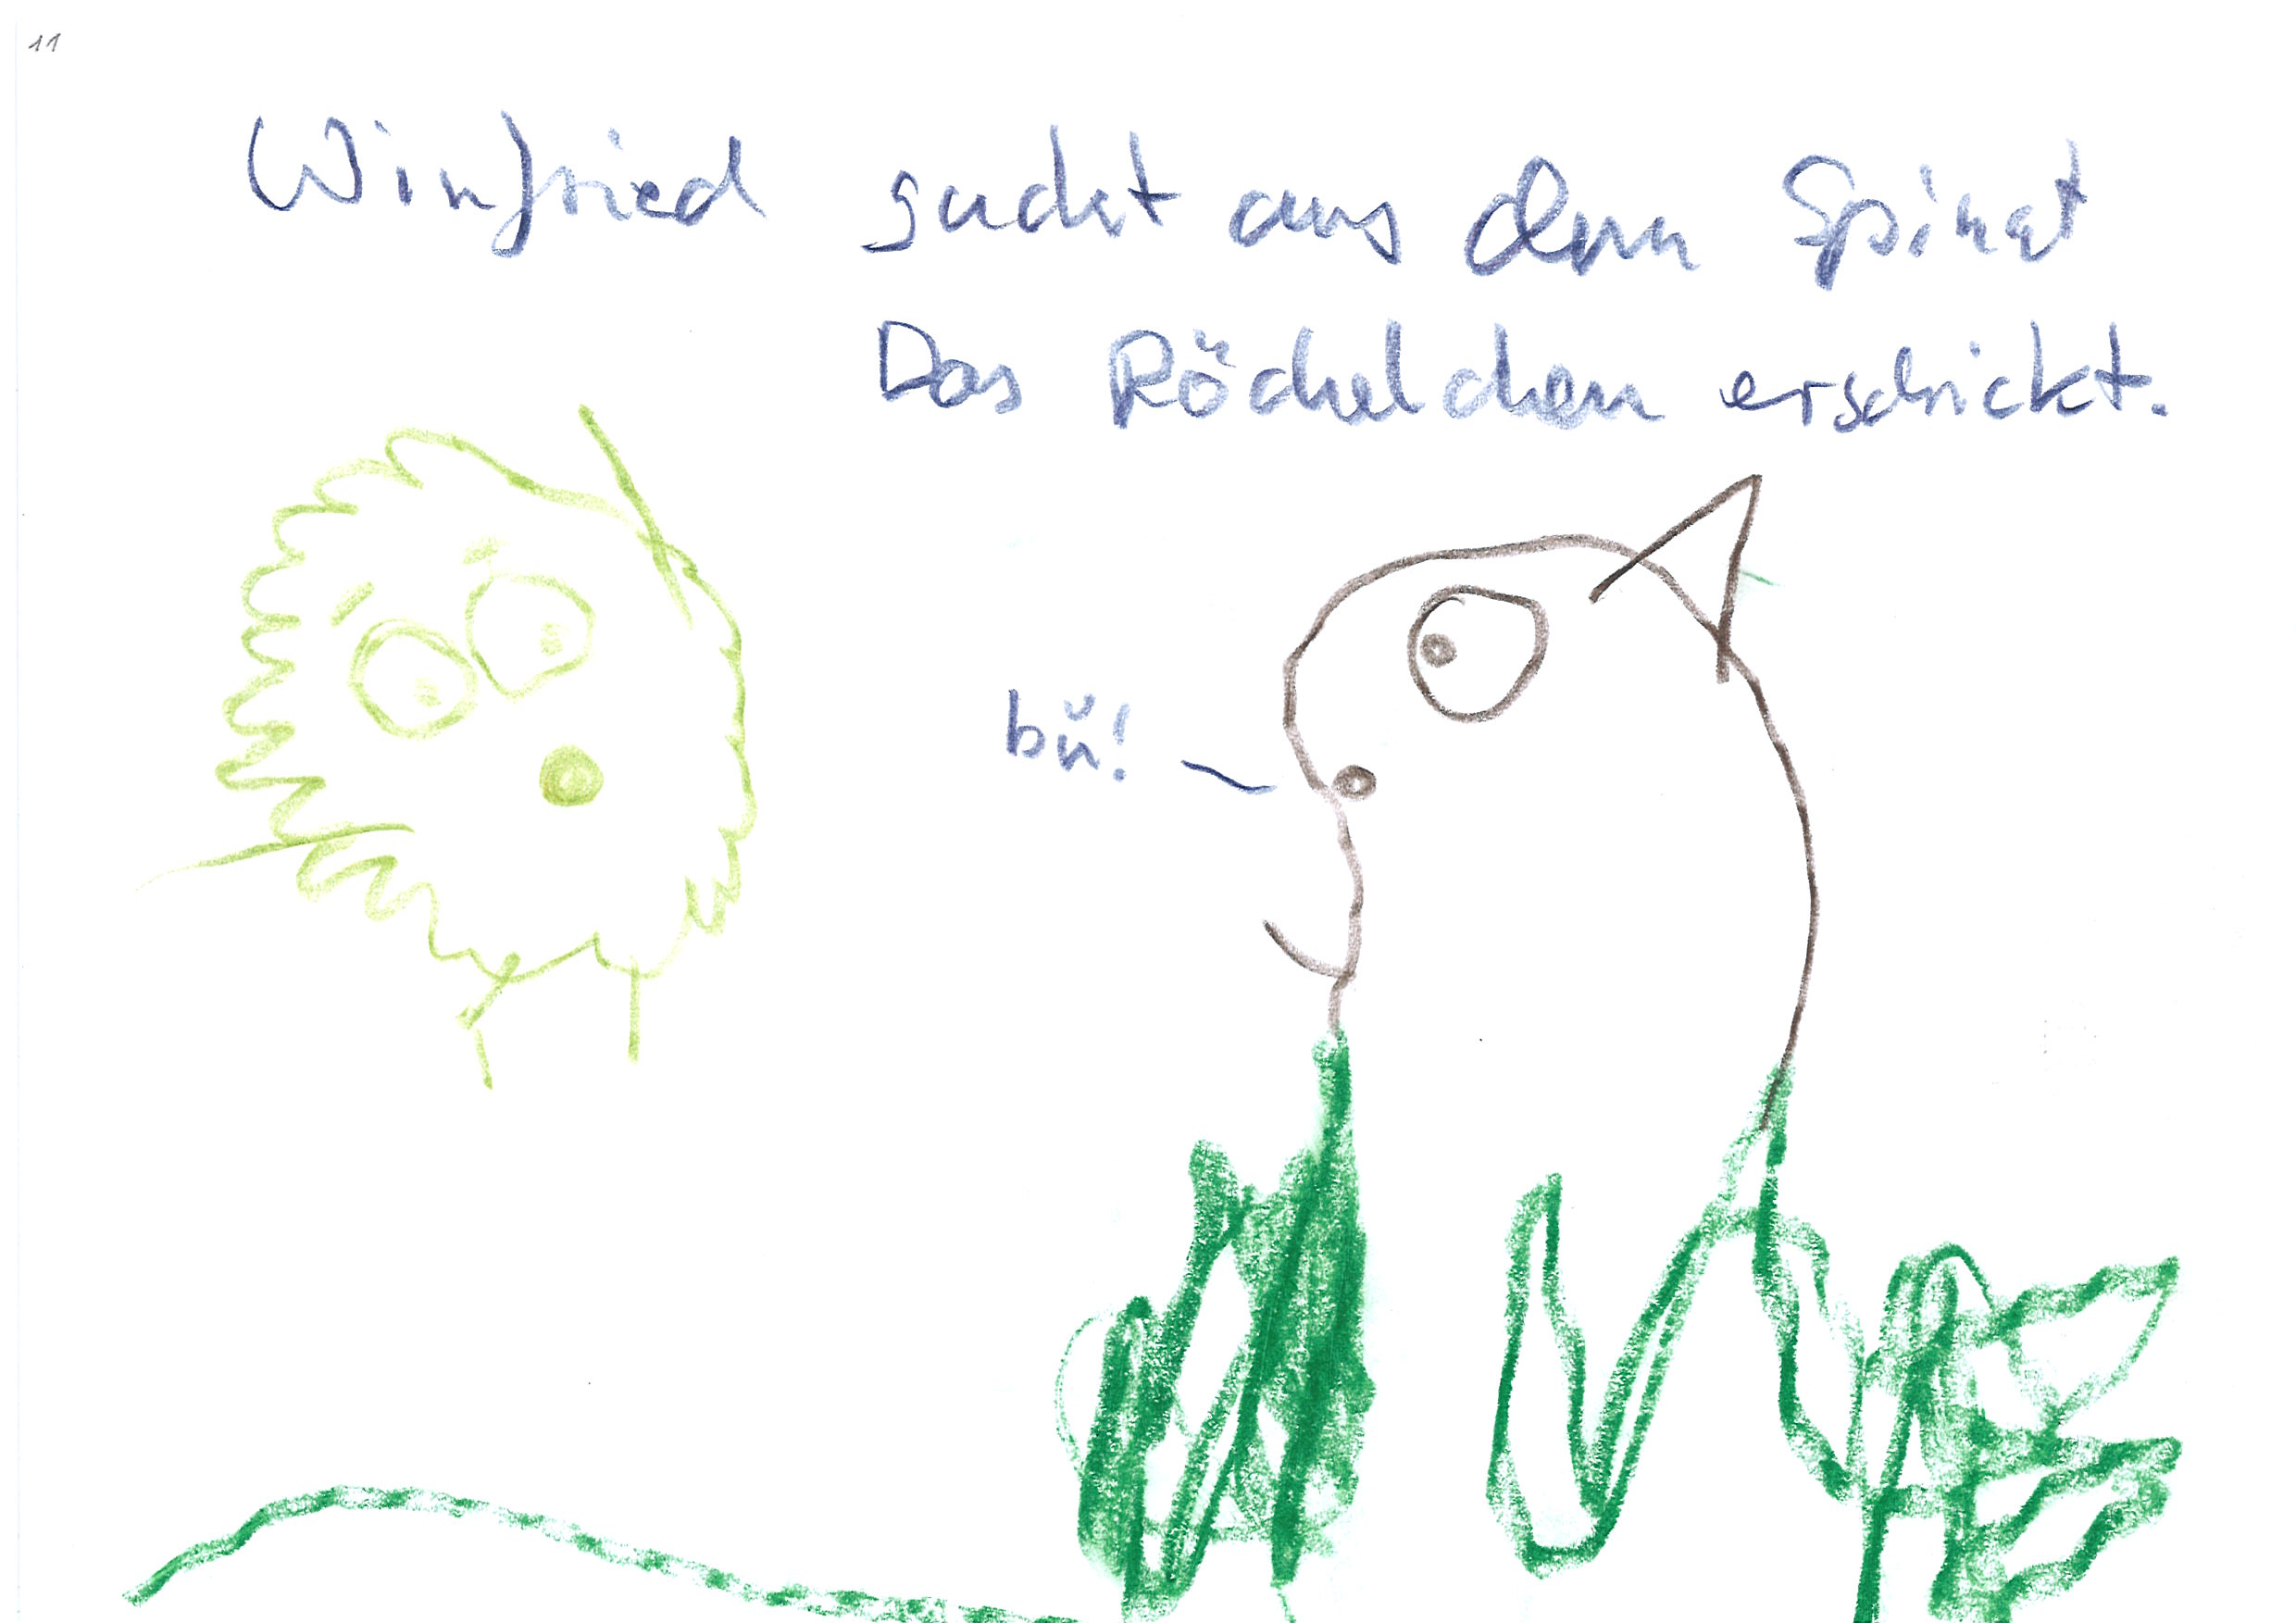 11
Winfried guckt aus dem Spinat
Das Röchelchen erschickt.
bü!